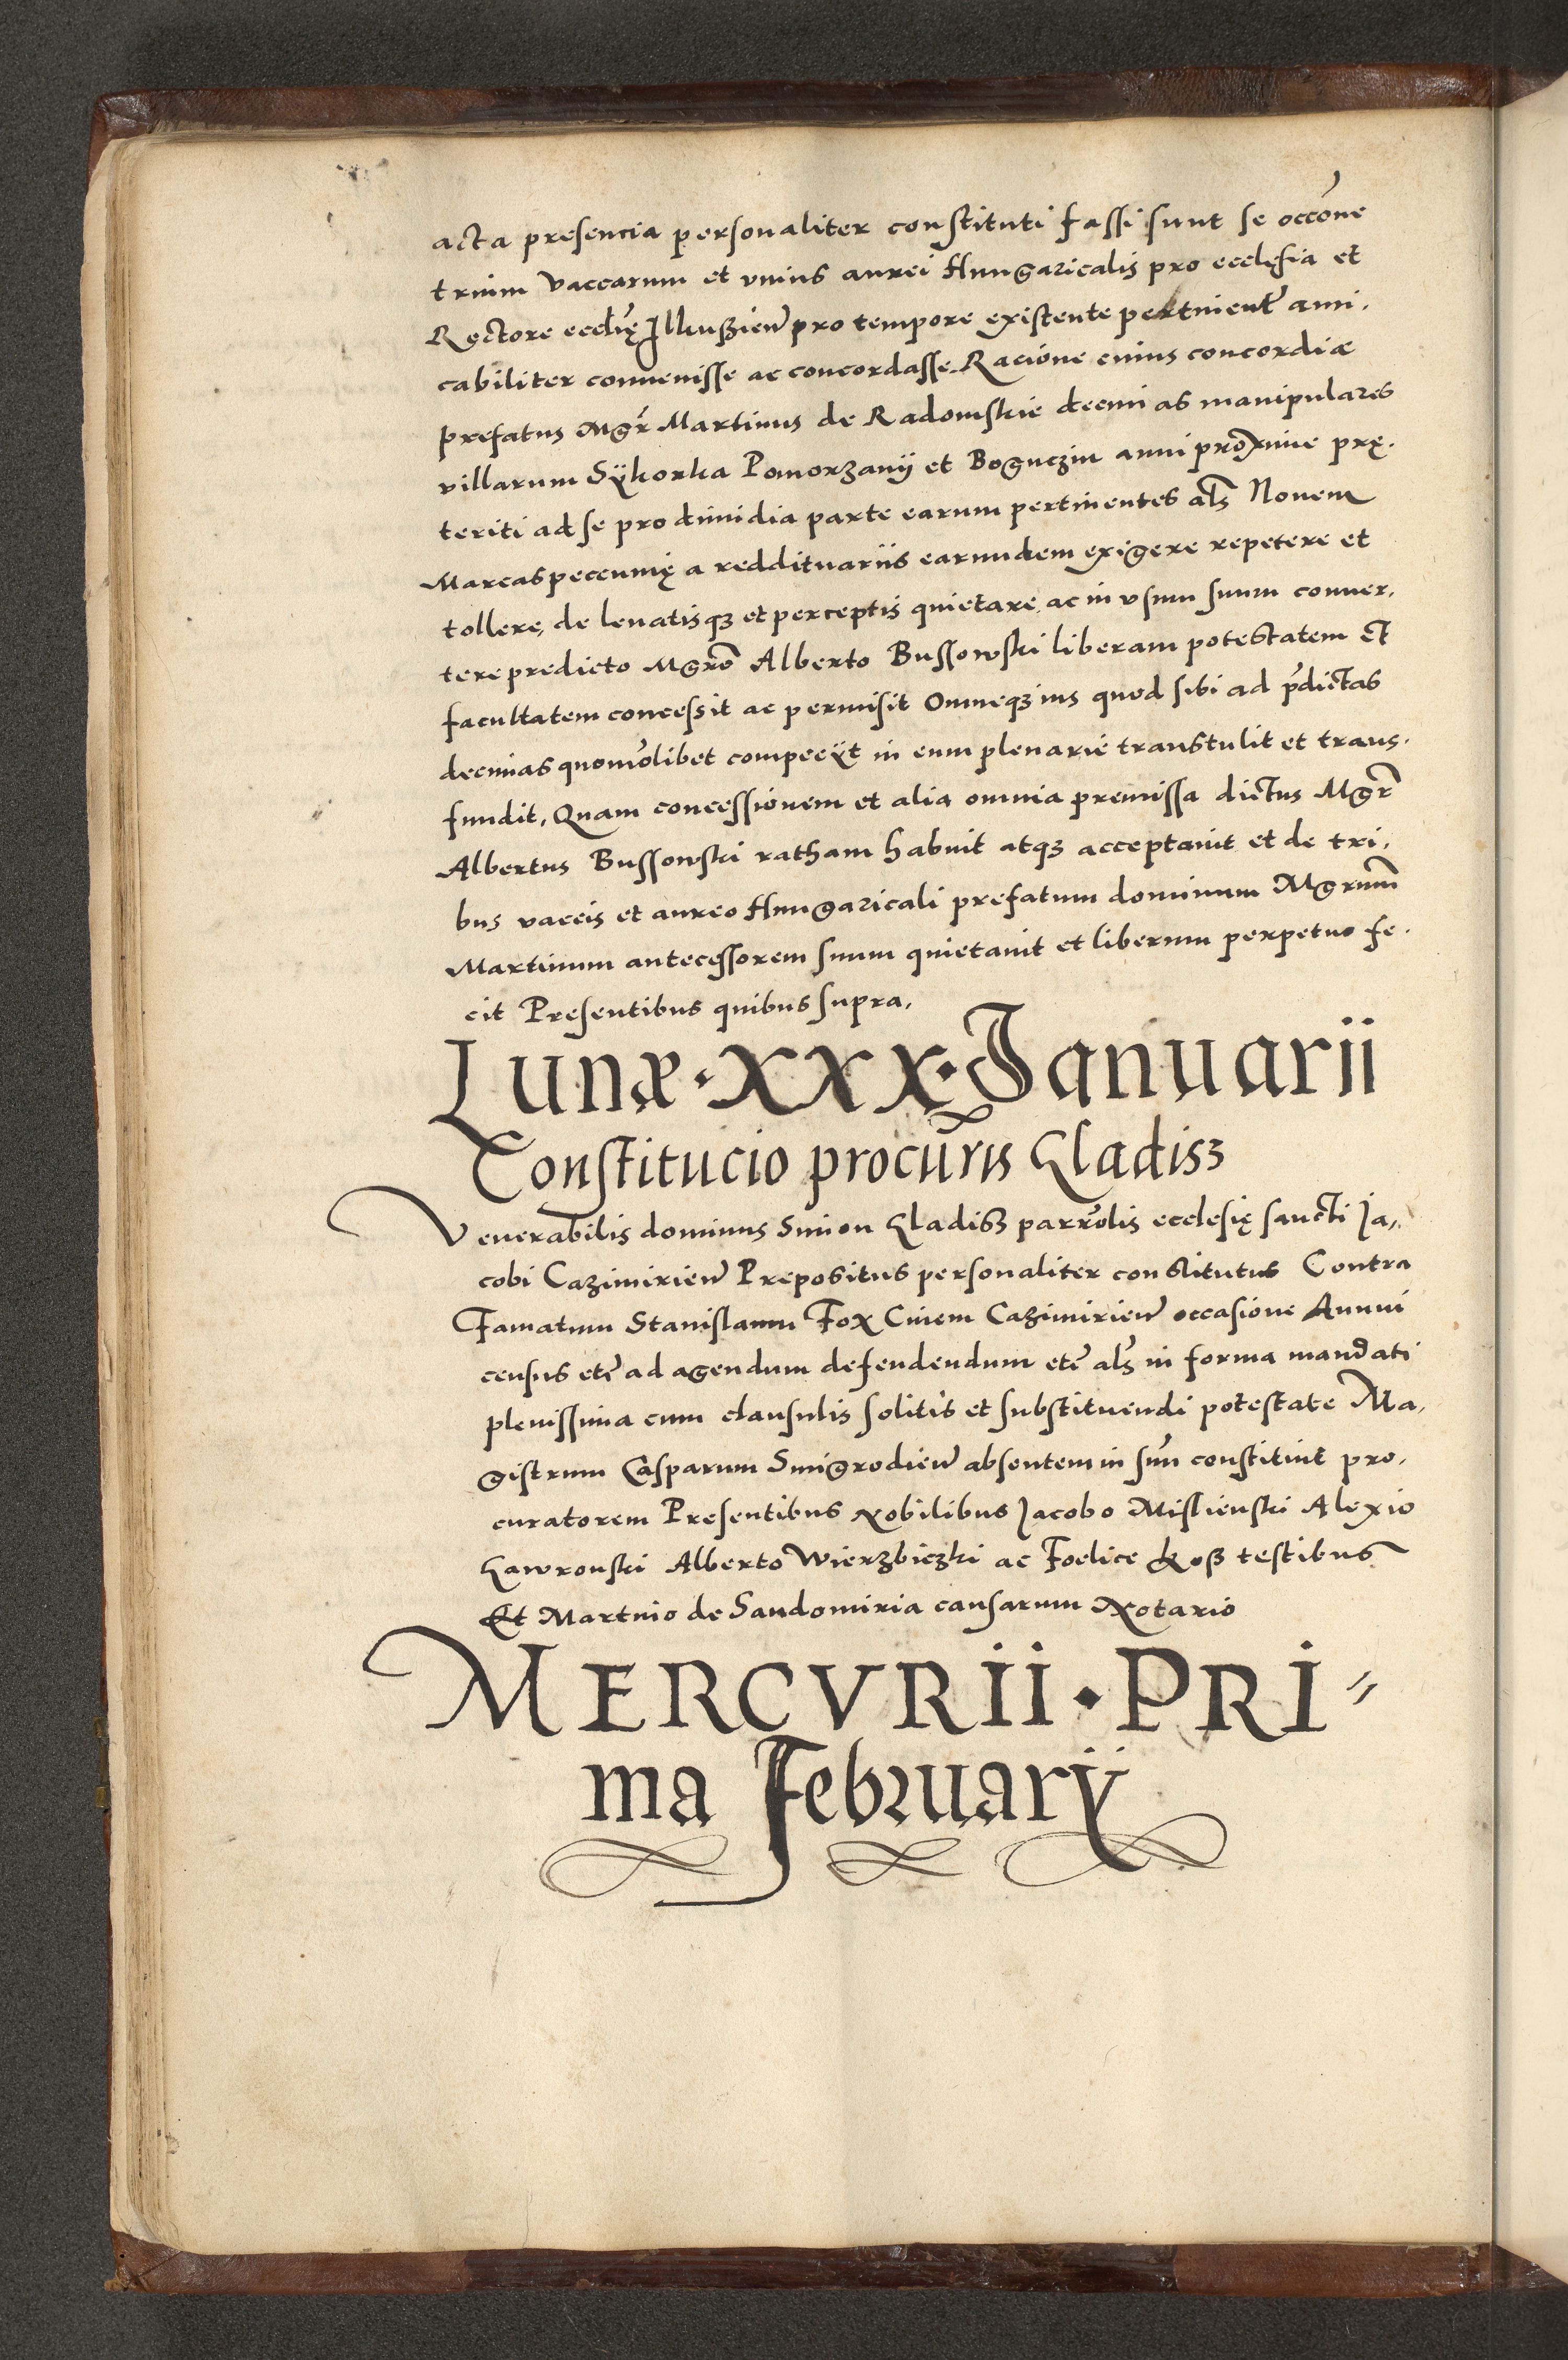 acta presencia personaliter constituti fassi sunt se occōne
trium vaccarum et vnius aurei Hungaricalis pro ecclęsia et
Rectore ecclīę Illkuszien̄ pro tempore existente pertinient̄ ami,
cabiliter convenisse ac concordasse. Racione cuius concordiæ
prefatus Mgr̄ Martinus de Radomskie decimas manipulares
villarum Sÿkorka Pomorzanÿ et Boguczin anni proxime prę,
teriti ad se pro dimidia parte earum pertinentes als̄ Novem
Marcas peccunię a reddituariis earundem exigere repetere et
tollere, de levatisqz et perceptis quietare, ac in vsum suum conver,
tere predicto Mgrō Alberto Bussowski liberam potestatem et
facultatem concessit ac permisit Omneqz ius quod sibi ad p̄dictas
decimas quomōlibet compecÿt in eum plenarie transtulit et trans,
fundit, Quam concessionem et alia omnia premissa dictus Mgr̄
Albertus Bussowski ratham habuit atqz acceptavit et de tri,
bus vaccis et aureo Hungaricali prefatum dominum Mgrum̄
Martinum antecessorem suum quietavit et liberum perpetuo fe,
cit Presentibus quibus supra,
Lunæ · xxx · Januarii
Constitucio procur̄is Gladisz
Venerabilis dominus Simon Gladisz parrōlis ecclesię sancti Ja,,
cobi Cazimirien̄ Prepositus personaliter constitutus Contra
Famatum Stanislaum Fox Civem Cazimirien̄ occasione Annui
census etc̄ ad agendum defendendum etc̄ als̄ in forma mandati
plenissima cum clausulis solitis et substituendi potestate Ma,
gistrum Casparum Smigrodien̄ absentem in sūu constituit pro,
curatorem Presentibus Nobilibus Jacobo Mislienski Alexio
Gawronski Alberto Wierzbiczki ac Foelice Kosz testibus
Et Martino de Sandomiria causarum Notario
MERCVRII · PRI=
ma Februarÿ